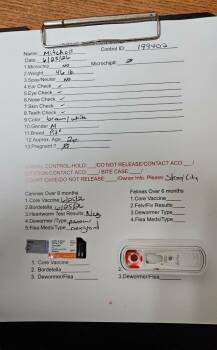 Name Mitchell Control ID: 199402
Date 6/25/26
1.Microchip No Microchip#
2.Weight 46 lb
3.Spay/Neuter No
4.Ear Check ✓
5.Eye Check ✓
6.Nose Check ✓
7.Skin Check ✓
8.Teeth Check ✓
9.Color brown/white
10.Gender M
11.Breed
12.Approx. Age
13.Pregnant ?
ANIMAL CONTROL-HOLD: /DO NOT RELEASE/CONTACT ACO /
/CONTACT ACO /BITE CASE /
COURT CASE/DO NOT RELEASE /Owner Info. Please
Canines Over 6 months
1. Core Vaccine 6/25/26
2. Bordetella 6/25/26
3. Heartworm Test Results Neg
4. Dewormer Type
5. Flea Meds/Type nexgard
Felines Over 6 months
1. Core Vaccine
2. Felv/Fiv Results
3. Dewormer Type
4. Flea Meds/Type
1. Core Vaccine
2. Bordetella
3. Dewormer/Flea
2.
3. Dewormer/Flea